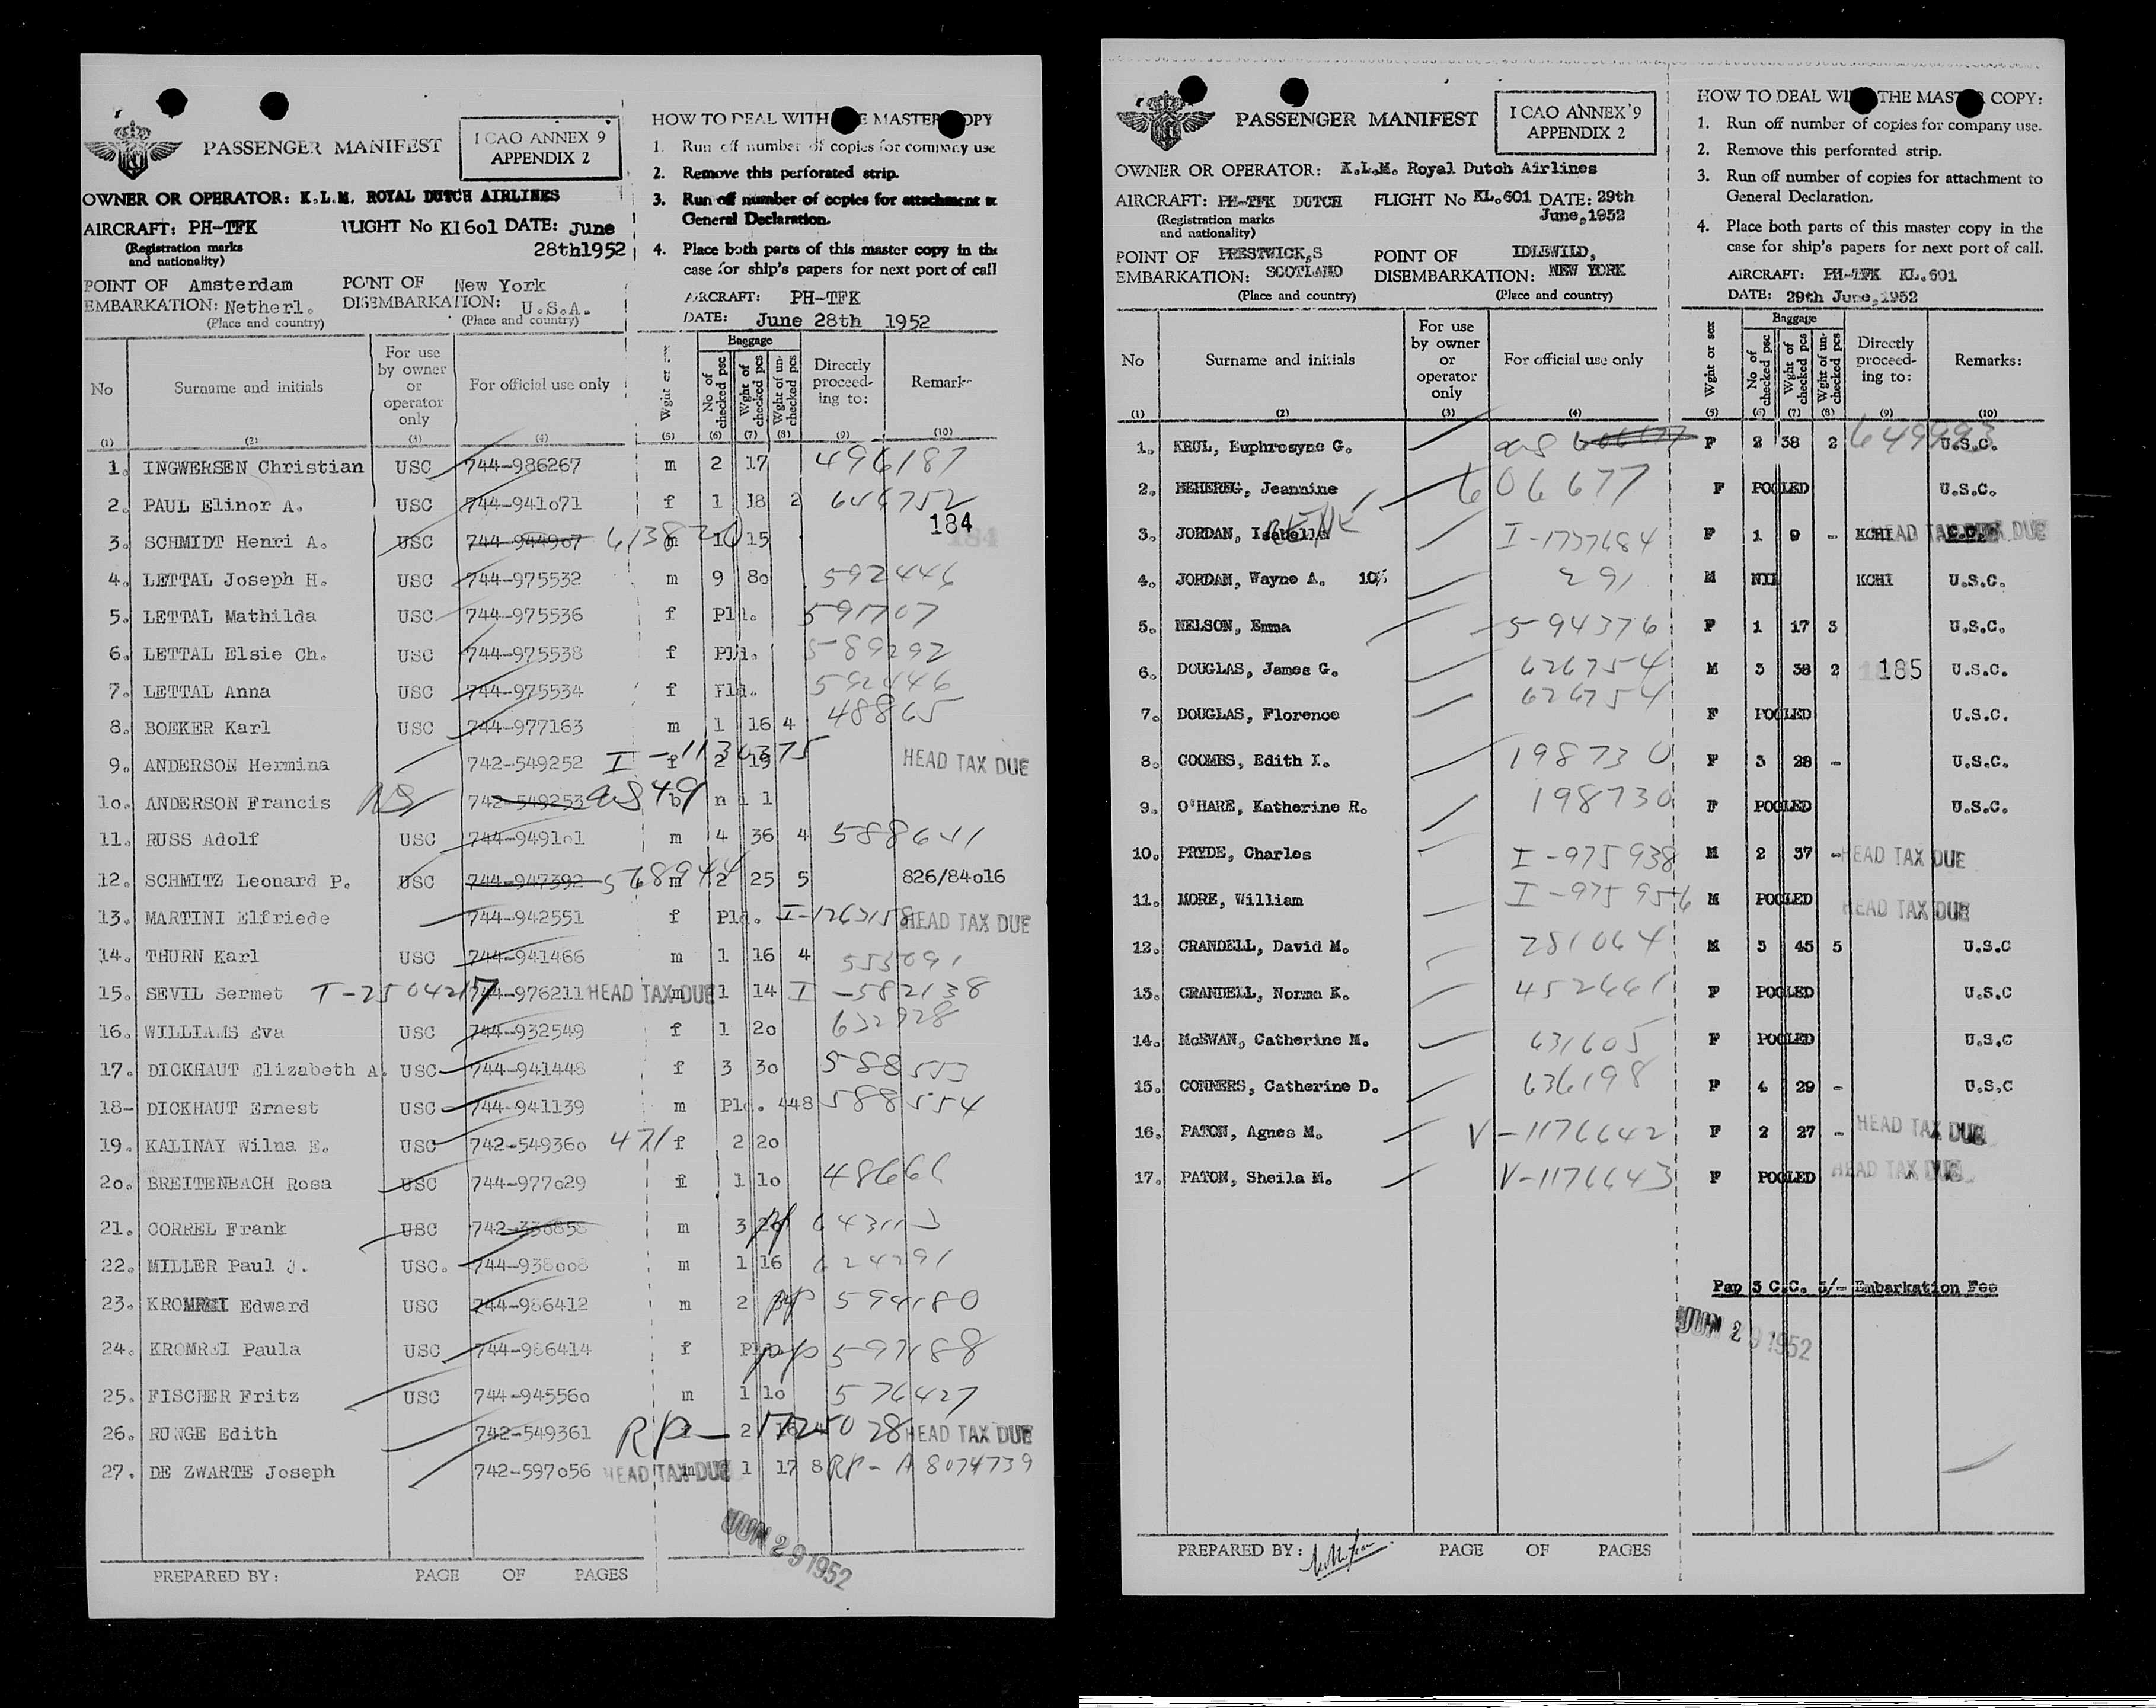 PASSENGER MANIFEST
I CAO ANNEX 9
APPENDIX 2
OWNER OR OPERATOR: K.L.M. ROYAL DUTCH AIRLINES
AIRCRAFT: PH-TFK FLIGHT No Kl 6o1 DATE: June
(Registration marks
and nationality) 28th1952
POINT OF Amsterdam POINT OF New York
EMBARKATION: Netherl. DISEMBARKATION: U.S.A.
(Place and country) (Place and country)
HOW TO DEAL WITH THE MASTER COPY
1. Run off number of copies for company use
2. Remove this perforated strip.
3. Run off number of copies for attachment to
General Declaration.
4. Place both parts of this master copy in the
case for ship's papers for next port of call
AIRCRAFT: PH-TFK
DATE: June 28th 1952
No Surname and initials For use by owner or operator only For official use only Wght or sex Baggage No of checked pcs Wght of checked pcs Wght of un-checked pcs Directly proceed-ing to: Remarks
(1) (2) (3) (4) (5) (6) (7) (8) (9) (10)
1. INGWERSEN Christian USC 744-986267 m 2 17 496187
2. PAUL Elinor A. USC 744-941o71 f 1 18 2 646752
184
3. SCHMIDT Henri A. USC 744-9449o7 m 1 15
4. LETTAL Joseph H. USC 744-975532 m 9 8o 592446
5. LETTAL Mathilda USC 744-975536 f Pld. 591707
6. LETTAL Elsie Ch. USC 744-975538 f Pld. 589292
7. LETTAL Anna USC 744-975534 f Pld. 592446
8. BOEKER Karl USC 744-977163 m 1 16 4 48865
9. ANDERSON Hermina 742-549252 I-1136375 f 2 19 HEAD TAX DUE
1o. ANDERSON Francis 742-549253 b n i 1
11. RUSS Adolf USC 744-9491o1 m 4 36 4 588641
12. SCHMITZ Leonard P. USC 744-947392 568944 m 2 25 5 826/84o16
13. MARTINI Elfriede 744-942551 f Pld. I-1263158 HEAD TAX DUE
14. THURN Karl USC 744-941466 m 1 16 4 553091
15. SEVIL Sermet T-2504217 744-976211 HEAD TAX DUE m 1 14 I-582138
16. WILLIAMS Eva USC 744-932549 f 1 2o 632928
17. DICKHAUT Elizabeth A. USC 744-941448 f 3 3o 588553
18- DICKHAUT Ernest USC 744-941139 m Pld. 448 588554
19. KALINAY Wilna E. USC 742-54936o 471 f 2 2o
2o. BREITENBACH Rosa USC 744-977o29 f 1 1o 48666
21. CORREL Frank USC 742-336855 m 3 643113
22. MILLER Paul J. USC. 744-938oo8 m 1 16 624291
23. KROMREI Edward USC 744-986412 m 2 594180
24. KROMREI Paula USC 744-986414 f Pld. 597188
25. FISCHER Fritz USC 744-94556o m 1 1o 576427
26. RUNGE Edith 742-549361 RP- 2 HEAD TAX DUE
27. DE ZWARTE Joseph 742-597o56 HEAD TAX DUE m 1 17 8 RP-A8074739
JUN 29 1952
PREPARED BY: PAGE OF PAGES
PASSENGER MANIFEST
I CAO ANNEX 9
APPENDIX 2
OWNER OR OPERATOR: K.L.M. Royal Dutch Airlines
AIRCRAFT: PH-TFK DUTCH FLIGHT No KL.601 DATE: 29th
(Registration marks June,1952
and nationality)
POINT OF PRESTWICK,S POINT OF IDLEWILD,
EMBARKATION: SCOTLAND DISEMBARKATION: NEW YORK
(Place and country) (Place and country)
HOW TO DEAL WITH THE MASTER COPY:
1. Run off number of copies for company use.
2. Remove this perforated strip.
3. Run off number of copies for attachment to
General Declaration.
4. Place both parts of this master copy in the
case for ship's papers for next port of call.
AIRCRAFT: PH-TFK KL.601
DATE: 29th June,1952
No Surname and initials For use by owner or operator only For official use only Wght or sex Baggage No of checked psc Wght of checked pcs Wght of un-checked pcs Directly proceed-ing to: Remarks:
(1) (2) (3) (4) (5) (6) (7) (8) (9) (10)
1. KRUL, Euphrosyne G. 606677 F 2 38 2 649993 U.S.C.
2. BEHEREG, Jeannine 606677 F POOLED U.S.C.
3. JORDAN, Isabelle I-1737684 F 1 9 - KCHI HEAD TAX DUE
4. JORDAN, Wayne A. 10% 291 M NIL KCHI U.S.C.
5. NELSON, Emma 594376 F 1 17 3 U.S.C.
6. DOUGLAS, James G. 626754 M 3 38 2 185 U.S.C.
7. DOUGLAS, Florence 626754 F POOLED U.S.C.
8. COOMBS, Edith I. 198730 F 3 28 - U.S.C.
9. O'HARE, Katherine R. 198730 F POOLED U.S.C.
10. PRYDE, Charles I-975938 M 2 37 - HEAD TAX DUE
11. MORE, William I-975956 M POOLED HEAD TAX DUE
12. CRANDELL, David M. 281064 M 3 45 5 U.S.C
13. CRANDELL, Norma K. 452661 F POOLED U.S.C
14. McEWAN, Catherine M. 631605 F POOLED U.S.C
15. CONNERS, Catherine D. 636198 F 4 29 - U.S.C
16. PATON, Agnes M. V-1176642 F 2 27 - HEAD TAX DUE
17. PATON, Sheila M. V-1176643 F POOLED HEAD TAX DUE
Pap 3 C.C. 5/- Embarkation Fee
JUN 29 1952
PREPARED BY: PAGE OF PAGES